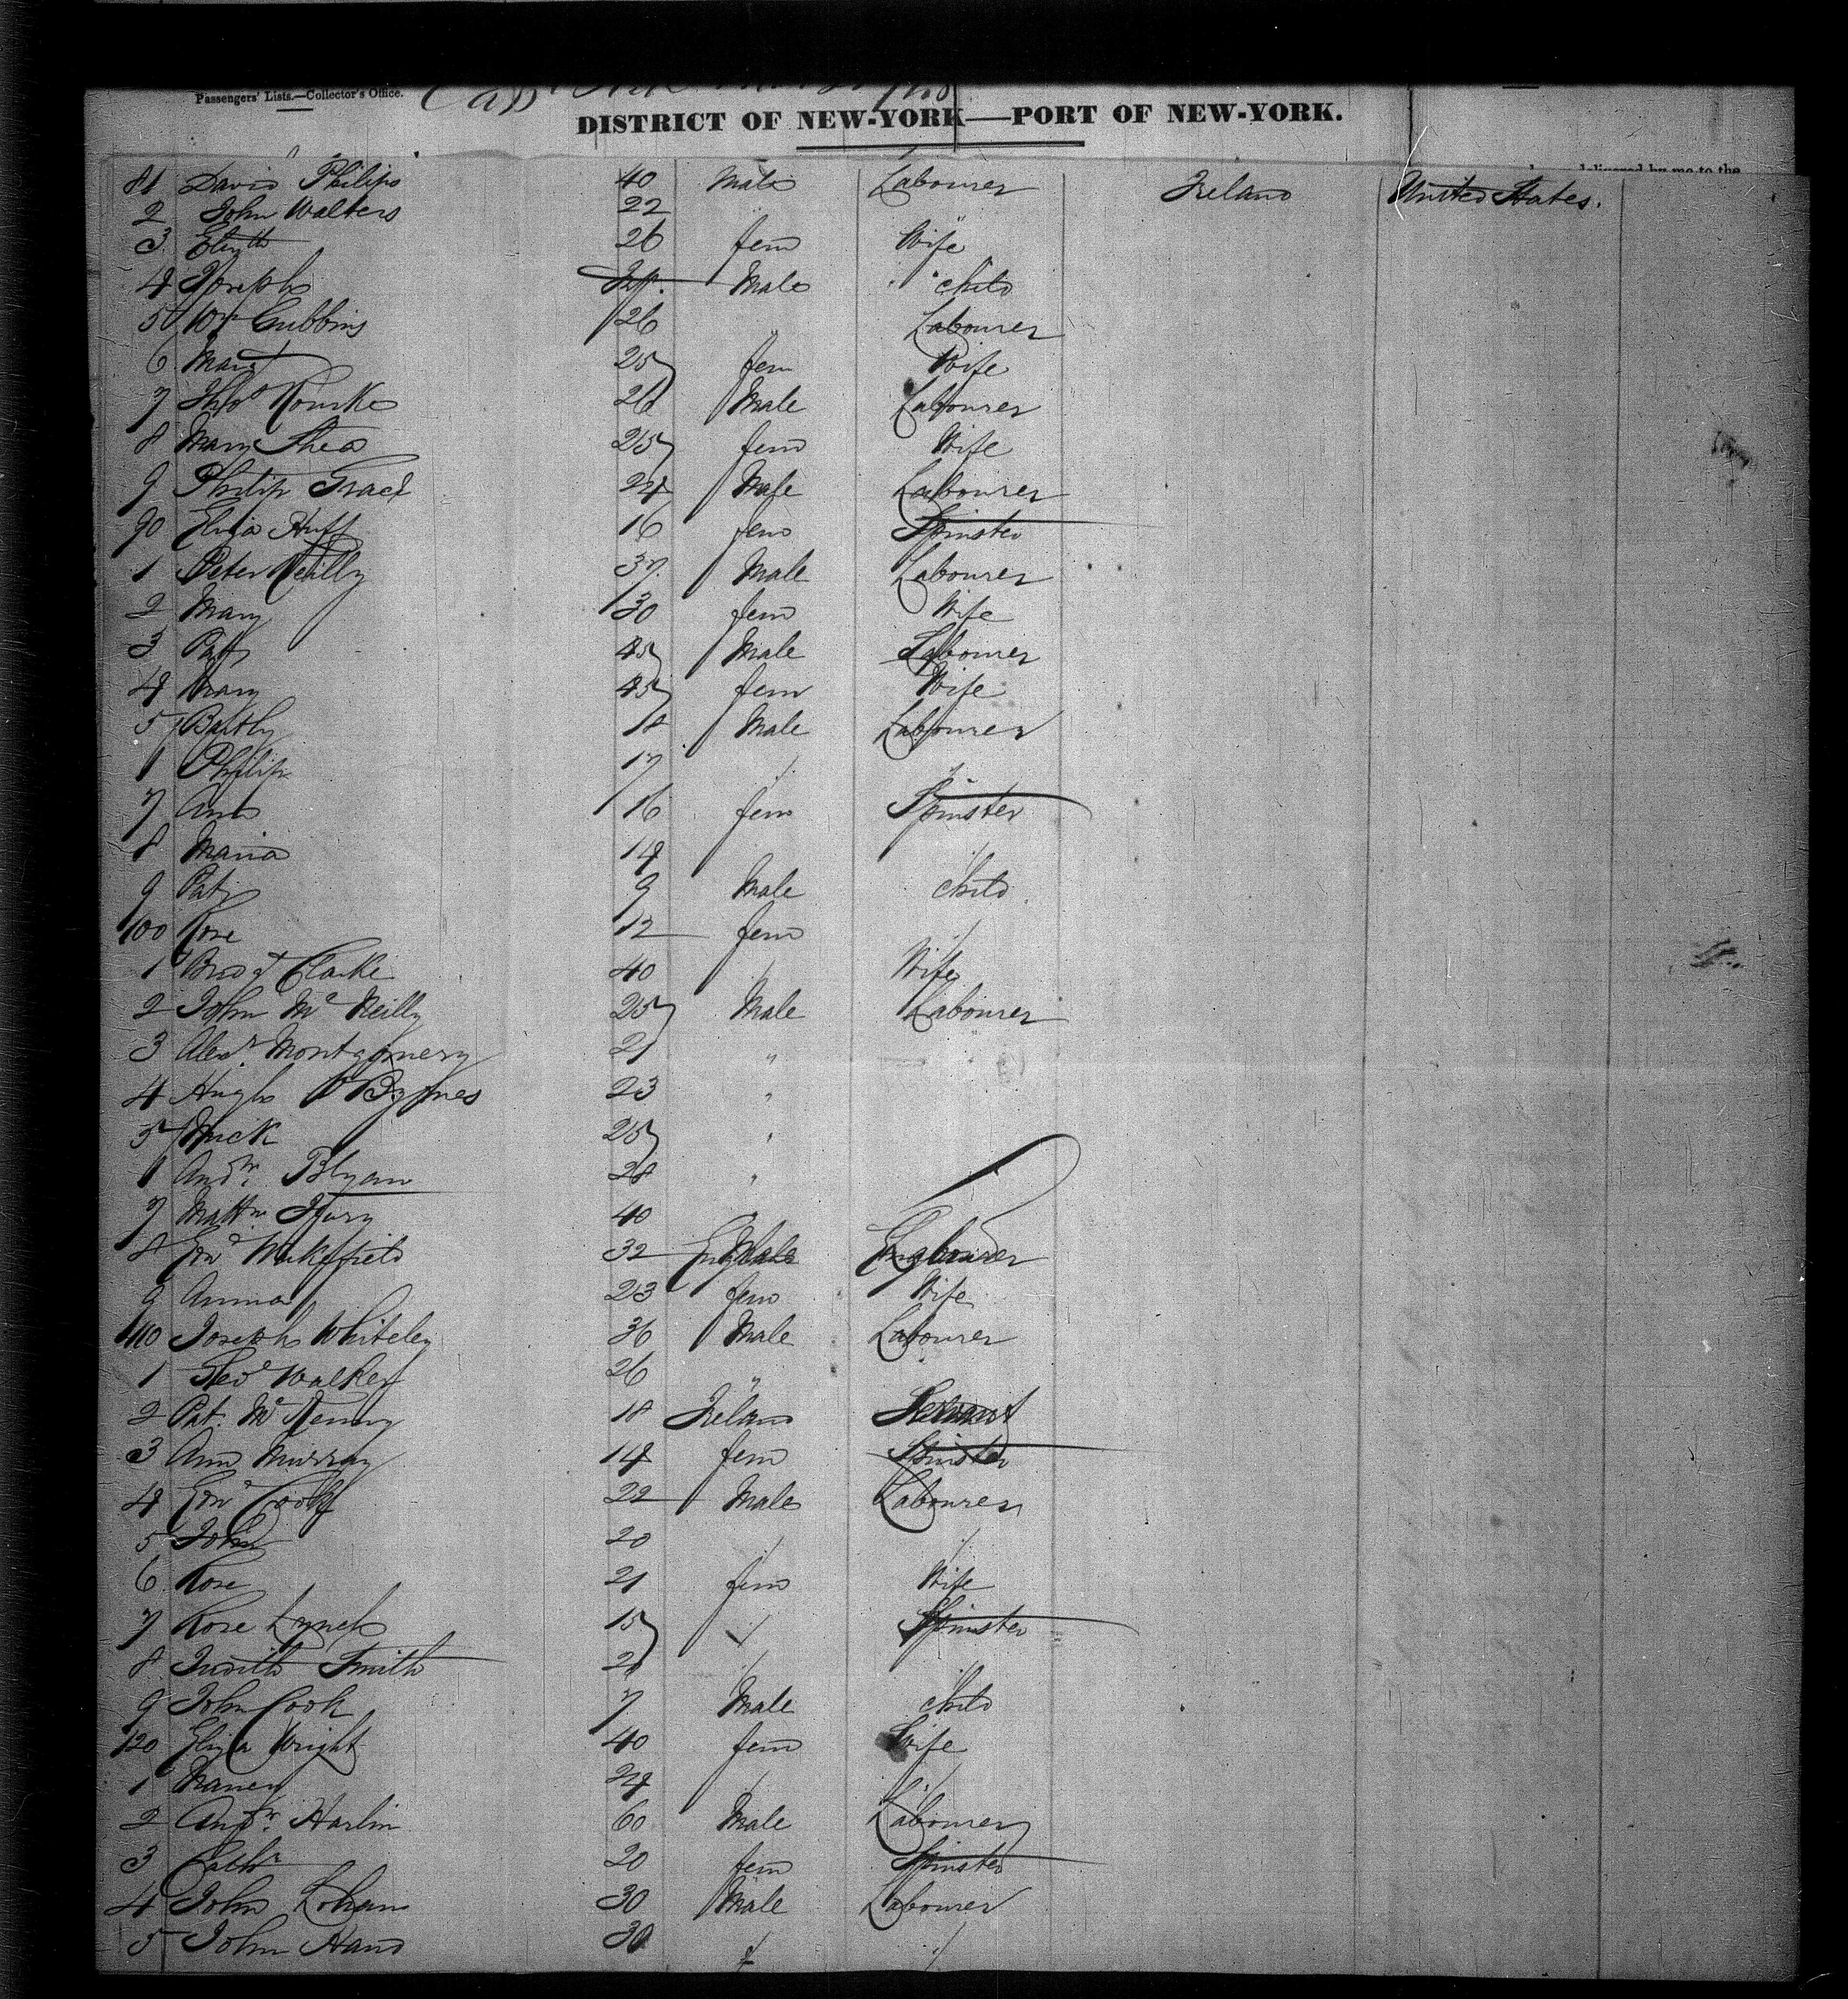 Passengers' Lists.—Collector's Office.
DISTRICT OF NEW-YORK—PORT OF NEW-YORK.
delivered by me to the
81 David Philips 40 Male Labourer Ireland United States.
2 John Walters 22 "
3 Elizth 26 fem Wife
4 Joseph Inf. Male child
5 Wm Cubbins 26 " Labourer
6 Mary 25 fem Wife
7 Thos Rourke 26 Male Labourer
8 Mary Shea 25 fem Wife
9 Philip Grace 24 Male Labourer
90 Eliza Huff 16 fem Spinster
1 Peter Reilly 37 Male Labourer
2 Mary 30 fem Wife
3 Pat 45 Male Labourer
4 Mary 45 fem Wife
5 Bartly 18 Male Labourer
1 Philip 17
7 Ann 16 fem Spinster
8 Maria 14
9 Pat 9 Male child
100 Rose 12 fem
1 Bridgt Clarke 40 Wife
2 John Mc Neilly 25 Male Labourer
3 Alexr Montgomery 21 "
4 Hugh Byrnes 23 "
5 Mick 25 "
1 Andw. 28 "
7 Matthw 40 "
8 Edwd Wakefield 32 England
9 Anna 23 fem Wife
110 Joseph Whiteley 36 Male Labourer
1 Geo Walker 26 "
2 Pat. Mc Kenny 18 Ireland Servant
3 Ann Murray 14 fem Spinster
4 Edwd Cook 22 Male Labourer
5 John 20
6 Rose 21 fem Wife
7 Rose Lynch 15 Spinster
8 Judith Smith 20
9 John Cook 7 Male child
120 Eliza Wright 40 fem Wife
1 Nancy 24
2 Andw. Harlin 60 Male Labourer
3 Cathr 20 fem Spinster
4 John Lohan 30 Male Labourer
5 John Hand 30